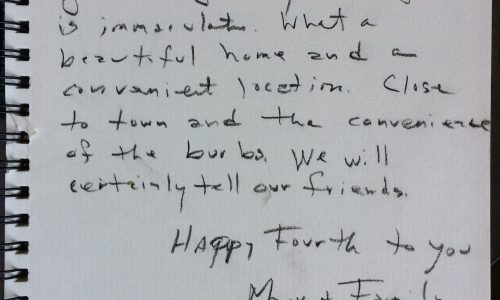 is immaculate. What a
beautiful home and a
convenient location. Close
to town and the convenience
of the burbs. We will
certainly tell our friends.
Happy Fourth to you
Family